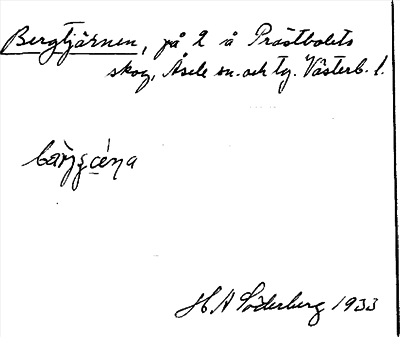 Bergtjärnen, på 2 å Prästbolets
skog, Åsele sn. och tg. Västerb. l.
H A Söderberg 1933